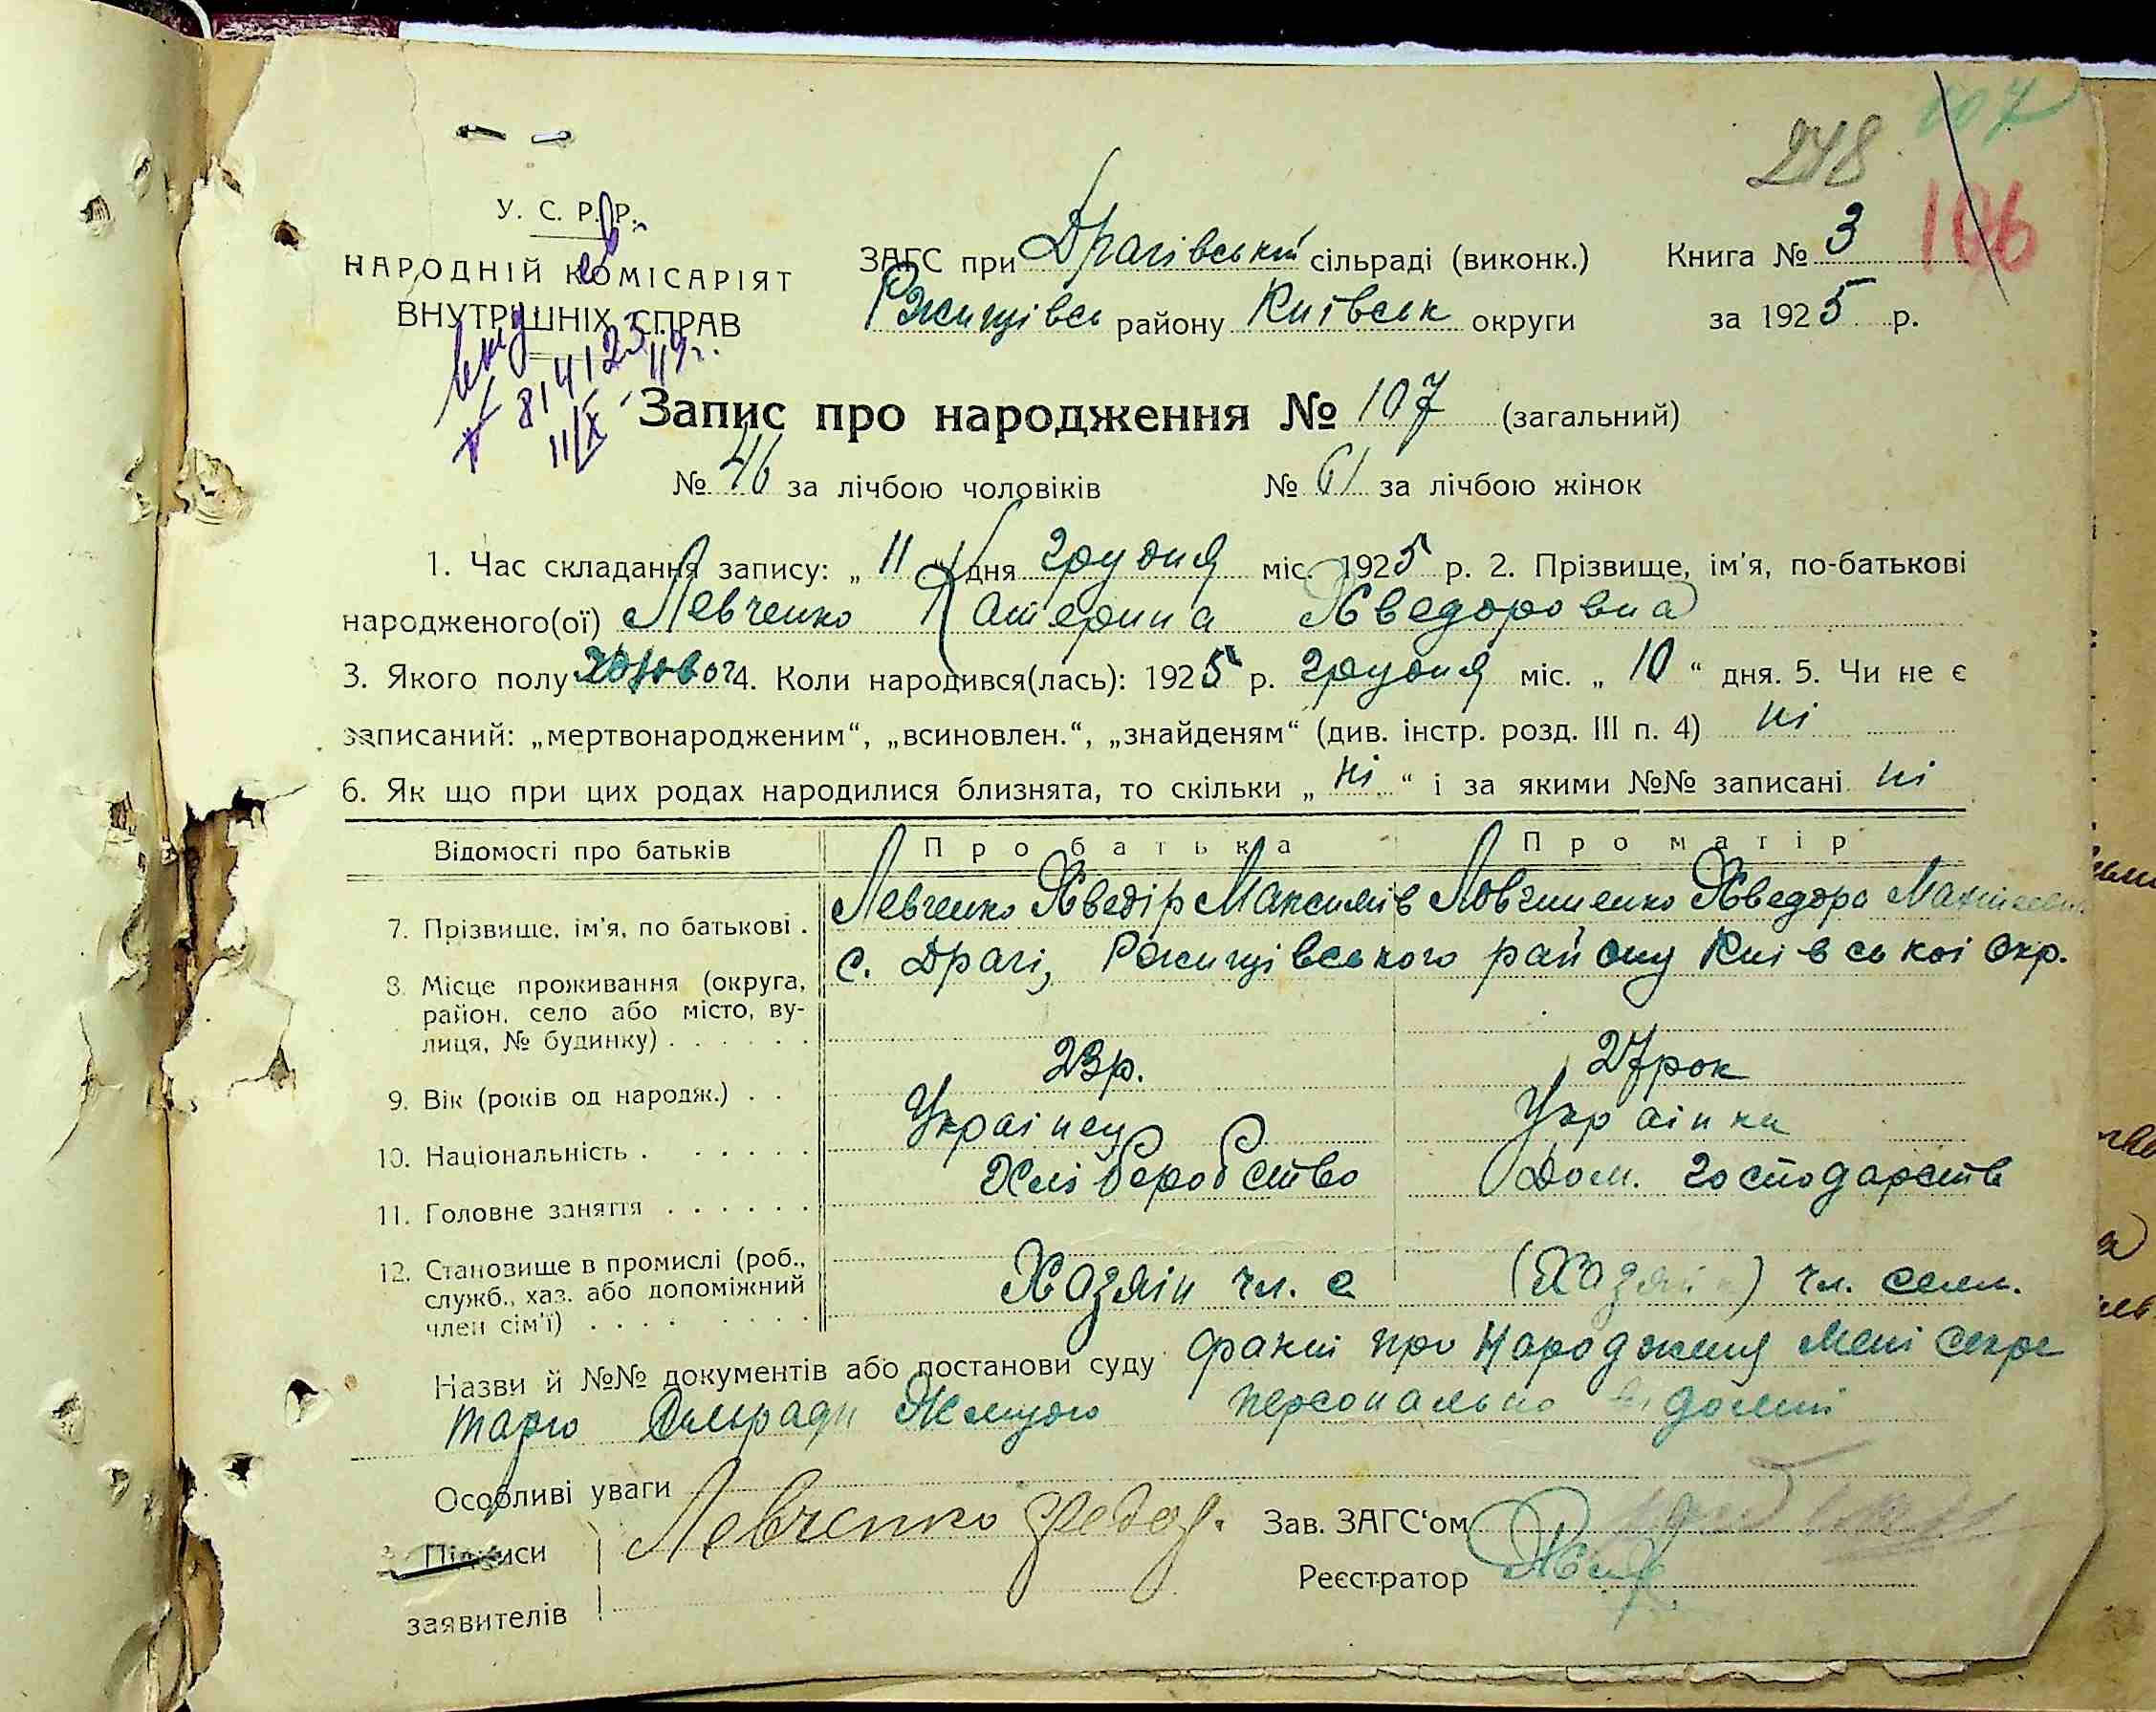 107
248
106
У. С. Р. Р.
НАРОДНІЙ КОМІСАРІЯТ
ВНУТРІШНІХ СПРАВ
ЗАГС при Драгівській сільраді (виконк.)
Ржищівсь району Київськ округи
Книга № 3
за 1925 р.
Запис про народження № 107 (загальний)
№ 46 за лічбою чоловіків № 61 за лічбою жінок
1. Час складання запису: „ 11 “ дня грудня міс. 1925 р. 2. Прізвище, ім'я, по-батькові
народженого(ої) Левченко Катерина Хведоровна
3. Якого полу 4. Коли народився(лась): 1925 р. грудня міс. „ 10 “ дня. 5. Чи не є
записаний: „мертвонародженим“, „всиновлен.“, „знайденям“ (див. інстр. розд. III п. 4) ні
6. Як що при цих родах народилися близнята, то скільки „ ні “ і за якими №№ записані ні
Відомості про батьків Про батька Про матір
7. Прізвище, ім'я, по батькові . Левченко Хведір Максимів Хведора
8. Місце проживання (округа, с. Драгі, Ржищівського району Київськоі Окр.
район, село або місто, ву-
лиця, № будинку) . . . . . .
9. Вік (років од народж.) . . 23р. 27рок
10. Національність . . . . . . Украінец Украінка
11. Головне заняття . . . . . . Хліборобство Дом. господарств
12. Становище в промислі (роб., Хазяін чл. с (Хазяін) чл. семи.
служб., хаз. або допоміжний
член сім'ї) . . . . . . . . .
Назви й №№ документів або постанови суду факт про народженя мені секре
тарю персонально відомий
Особливі уваги
Підписи Левченко Федор. Зав. ЗАГС‘ом
заявителів Реєстратор